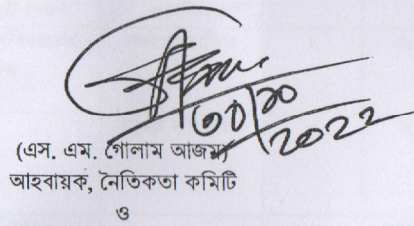 ৩০/১০
2022
(এস. এম. গোলাম আজম)
আহবায়ক, নৈতিকতা কমিটি
ও